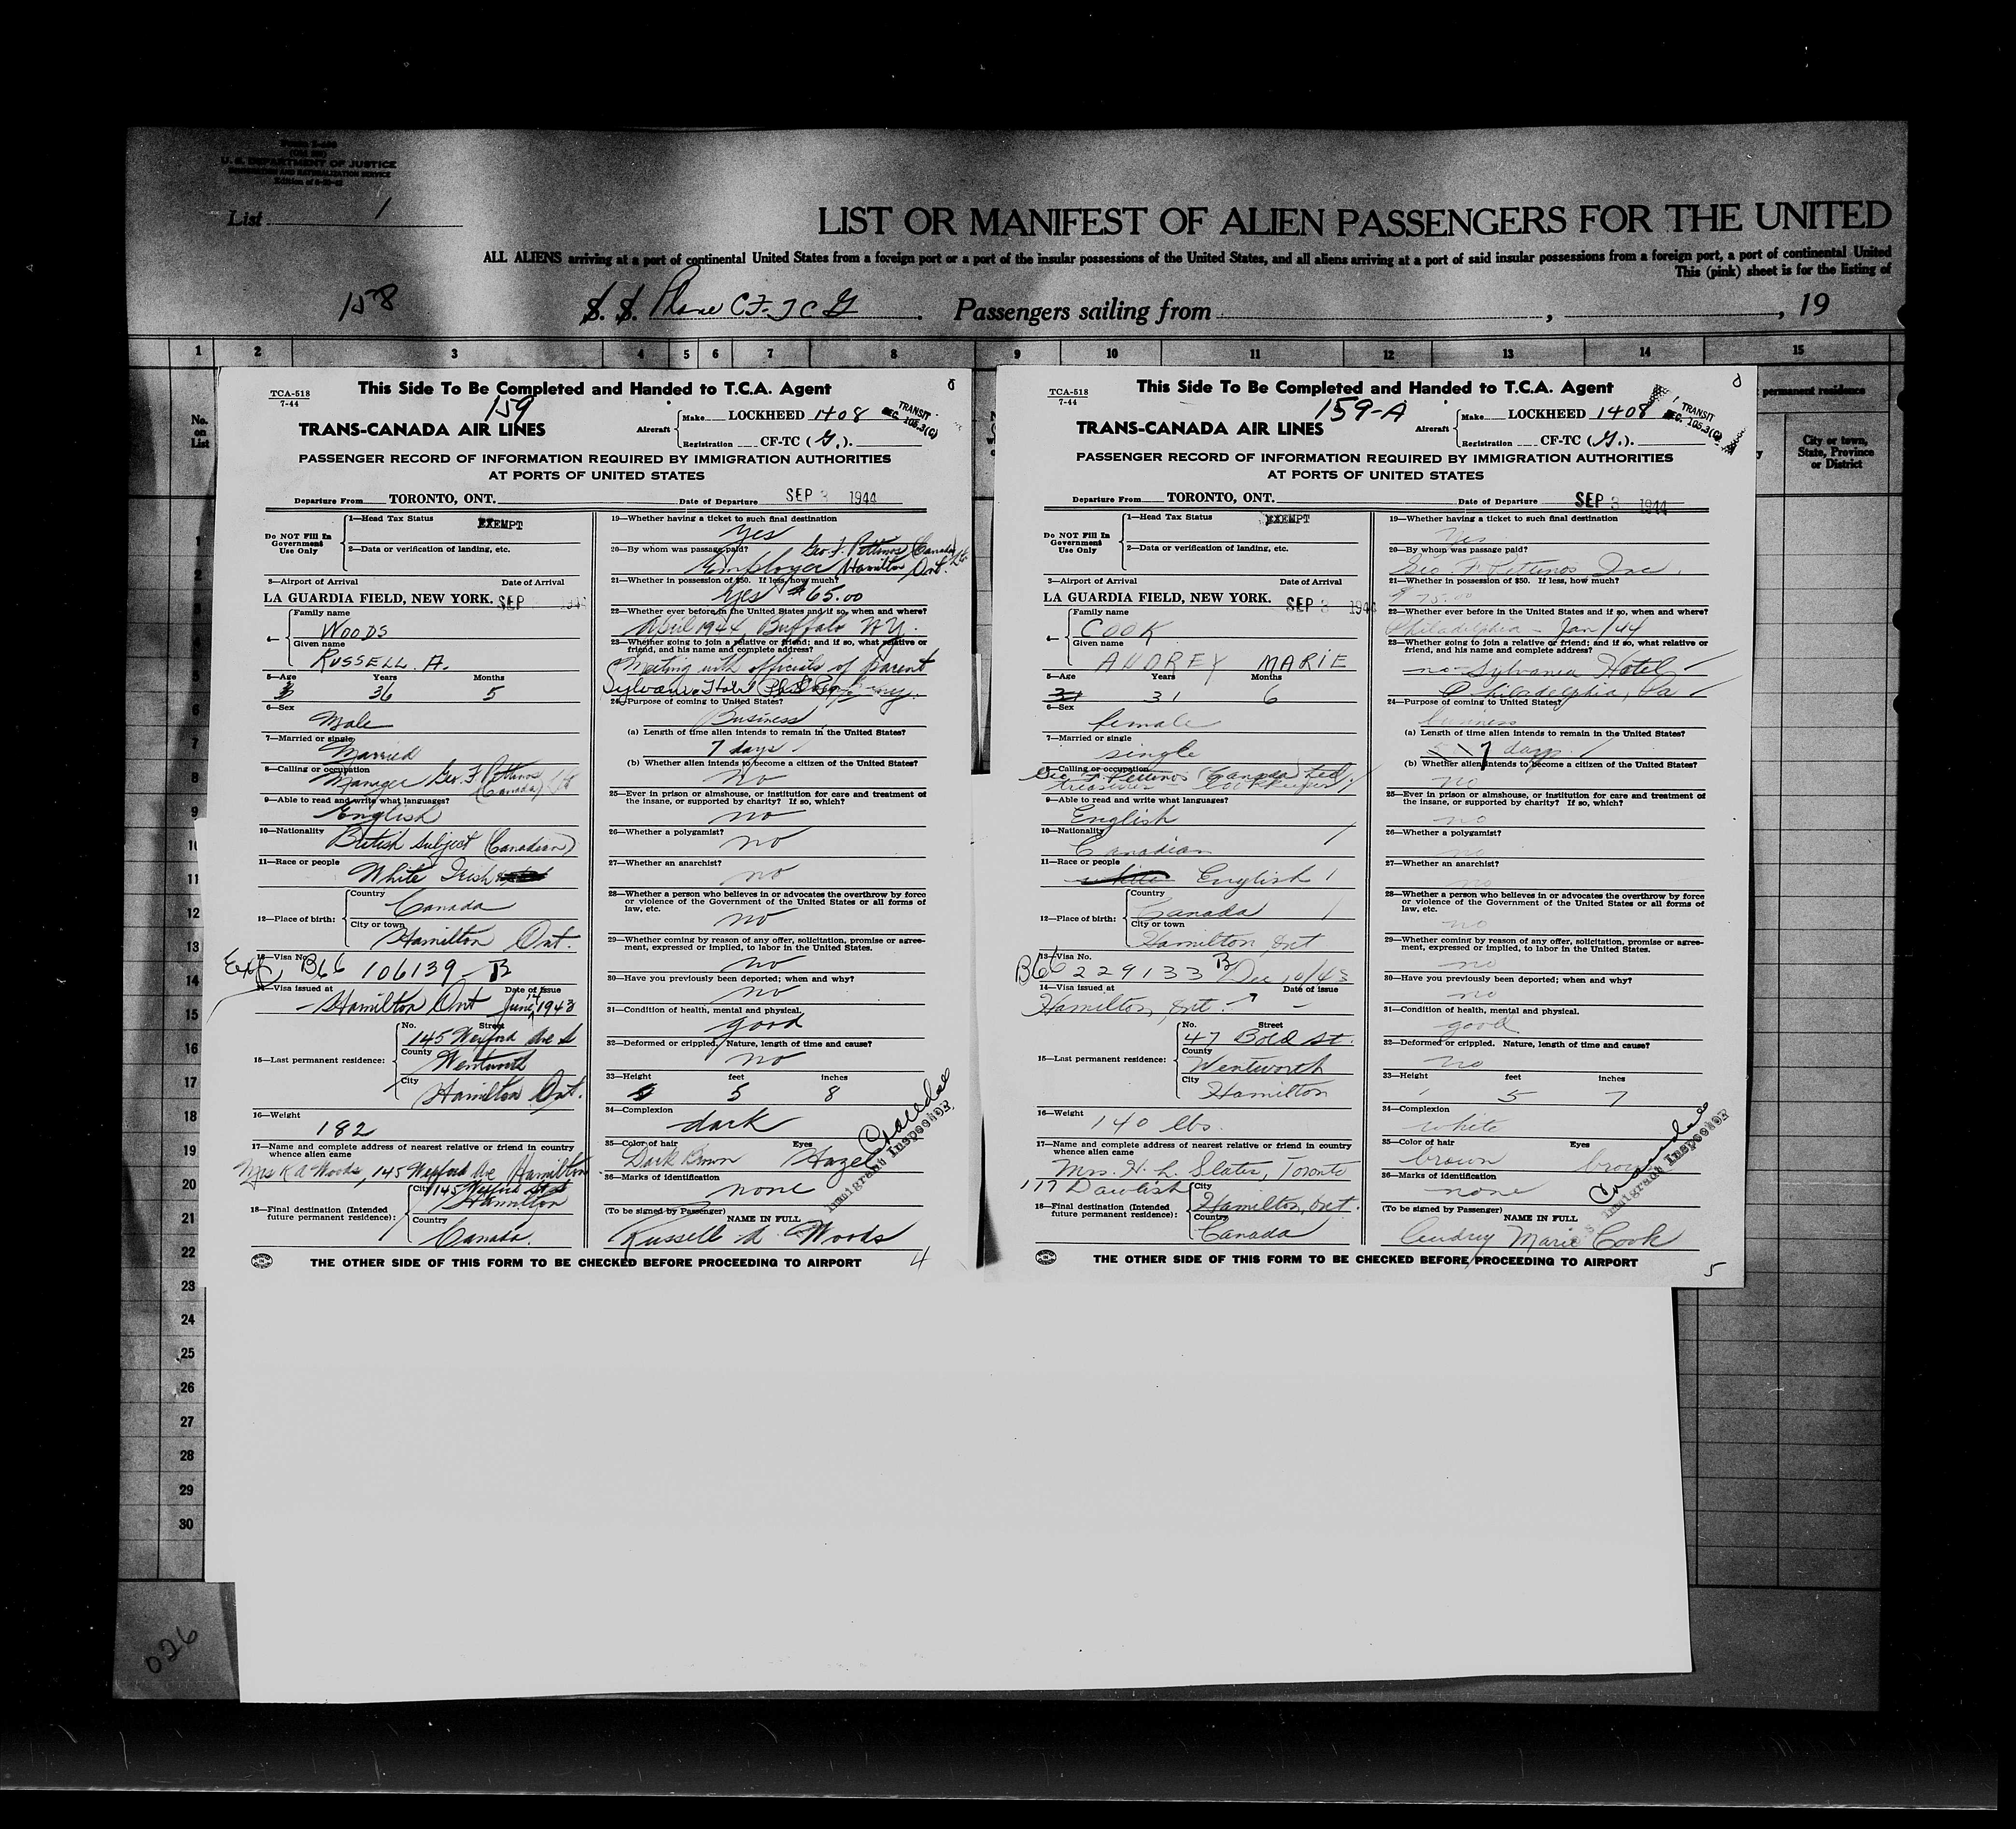 U. S. DEPARTMENT OF JUSTICE
IMMIGRATION AND NATURALIZATION SERVICE
List 1
LIST OR MANIFEST OF ALIEN PASSENGERS FOR THE UNITED
ALL ALIENS arriving at a port of continental United States from a foreign port or a port of the insular possessions of the United States, and all aliens arriving at a port of said insular possessions from a foreign port, a port of continental United
This (pink) sheet is for the listing of
158 S. S. Plane CF-TCG Passengers sailing from , , 19
1 2 3 4 5 6 7 8 9 10 11 12 13 14 15
No. on List
permanent residence
City or town, State, Province or District
TCA-518
7-44
This Side To Be Completed and Handed to T.C.A. Agent
159
TRANS-CANADA AIR LINES
Aircraft
Make LOCKHEED 1408
Registration CF-TC (G.).
TRANSIT
SEC. 105.3(C)
PASSENGER RECORD OF INFORMATION REQUIRED BY IMMIGRATION AUTHORITIES
AT PORTS OF UNITED STATES
Departure From TORONTO, ONT. Date of Departure SEP 3 1944
Do NOT Fill In Government Use Only
1—Head Tax Status EXEMPT
2—Data or verification of landing, etc.
3—Airport of Arrival Date of Arrival
LA GUARDIA FIELD, NEW YORK. SEP
4—
Family name
WOODS
Given name
RUSSELL. A.
5—Age Years Months
36 5
6—Sex
Male
7—Married or single
Married
8—Calling or occupation
Manager Geo. F. Pettinos
(Canada) Ltd
9—Able to read and write what languages?
English
10—Nationality
British Subject (Canadian)
11—Race or people
White Irish
12—Place of birth:
Country
Canada
City or town
Hamilton Ont.
13—Visa No.
B66 106139 B
14—Visa issued at Date of issue
Hamilton Ont June 1943
15—Last permanent residence:
No. Street
145 Wexford Ave S
County
Wentworth
City
Hamilton Ont.
16—Weight
182
17—Name and complete address of nearest relative or friend in country
whence alien came
Mrs R A Woods, 145 Wexford Ave Hamilton
18—Final destination (Intended
future permanent residence):
City
Hamilton
Country
Canada.
19—Whether having a ticket to such final destination
Yes
20—By whom was passage paid? Geo. F. Pettinos (Canada) Ltd.
Employer Hamilton Ont.
21—Whether in possession of $50. If less, how much?
Yes $65.00
22—Whether ever before in the United States and if so, when and where?
April 1944 Buffalo NY.
23—Whether going to join a relative or friend; and if so, what relative or
friend, and his name and complete address?
Meeting with officials of parent
Sylvania Hotel
24—Purpose of coming to United States?
Business
(a) Length of time alien intends to remain in the United States?
7 days
(b) Whether alien intends to become a citizen of the United States?
no
25—Ever in prison or almshouse, or institution for care and treatment of
the insane, or supported by charity? If so, which?
no
26—Whether a polygamist?
no
27—Whether an anarchist?
no
28—Whether a person who believes in or advocates the overthrow by force
or violence of the Government of the United States or all forms of
law, etc.
no
29—Whether coming by reason of any offer, solicitation, promise or agree-
ment, expressed or implied, to labor in the United States.
no
30—Have you previously been deported; when and why?
no
31—Condition of health, mental and physical.
good
32—Deformed or crippled. Nature, length of time and cause?
no
33—Height feet inches
5 8
34—Complexion
dark
35—Color of hair Eyes
Dark Brown Hazel
36—Marks of identification
none
Immigrant Inspector
(To be signed by Passenger) NAME IN FULL
Russell A Woods
THE OTHER SIDE OF THIS FORM TO BE CHECKED BEFORE PROCEEDING TO AIRPORT
4
TCA-518
7-44
This Side To Be Completed and Handed to T.C.A. Agent
159-A
TRANS-CANADA AIR LINES
Aircraft
Make LOCKHEED 1408
Registration CF-TC (G.).
TRANSIT
SEC. 105.3(C)
PASSENGER RECORD OF INFORMATION REQUIRED BY IMMIGRATION AUTHORITIES
AT PORTS OF UNITED STATES
Departure From TORONTO, ONT. Date of Departure SEP 3 1944
Do NOT Fill In Government Use Only
1—Head Tax Status EXEMPT
2—Data or verification of landing, etc.
3—Airport of Arrival Date of Arrival
LA GUARDIA FIELD, NEW YORK. SEP 3 1944
4—
Family name
COOK
Given name
AUDREY MARIE
5—Age Years Months
31 6
6—Sex
female
7—Married or single
single
8—Calling or occupation
Geo. F. Pettinos (Canada) Ltd.
treasurer - bookkeeper
9—Able to read and write what languages?
English
10—Nationality
Canadian
11—Race or people
white English
12—Place of birth:
Country
Canada
City or town
Hamilton, Ont
13—Visa No.
B66 229133 B Dec 10/43
14—Visa issued at Date of issue
Hamilton, Ont.
15—Last permanent residence:
No. Street
47 Bold St.
County
Wentworth
City
Hamilton
16—Weight
140 lbs.
17—Name and complete address of nearest relative or friend in country
whence alien came
Mrs. H. L. Slater, Toronto
177 Dawlish
18—Final destination (Intended
future permanent residence):
City
Hamilton, Ont.
Country
Canada
19—Whether having a ticket to such final destination
Yes
20—By whom was passage paid?
Geo. F. Pettinos Inc.
21—Whether in possession of $50. If less, how much?
$75.00
22—Whether ever before in the United States and if so, when and where?
Philadelphia - Jan/44
23—Whether going to join a relative or friend; and if so, what relative or
friend, and his name and complete address?
no - Sylvania Hotel
Philadelphia, Pa
24—Purpose of coming to United States?
business
(a) Length of time alien intends to remain in the United States?
7 days.
(b) Whether alien intends to become a citizen of the United States?
no
25—Ever in prison or almshouse, or institution for care and treatment of
the insane, or supported by charity? If so, which?
no
26—Whether a polygamist?
no
27—Whether an anarchist?
no
28—Whether a person who believes in or advocates the overthrow by force
or violence of the Government of the United States or all forms of
law, etc.
no
29—Whether coming by reason of any offer, solicitation, promise or agree-
ment, expressed or implied, to labor in the United States.
no
30—Have you previously been deported; when and why?
no
31—Condition of health, mental and physical.
good
32—Deformed or crippled. Nature, length of time and cause?
no
33—Height feet inches
5 7
34—Complexion
white
35—Color of hair Eyes
brown brown
36—Marks of identification
none
Immigrant Inspector
(To be signed by Passenger) NAME IN FULL
Audrey Marie Cook
THE OTHER SIDE OF THIS FORM TO BE CHECKED BEFORE PROCEEDING TO AIRPORT
5
1
2
3
4
5
6
7
8
9
10
11
12
13
14
15
16
17
18
19
20
21
22
23
24
25
26
27
28
29
30
026